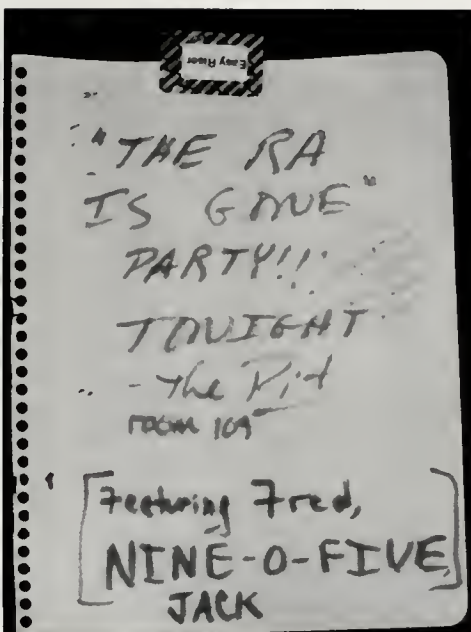 Easy Rider
"THE RA
IS GONE"
PARTY!!!
TONIGHT
- The Pit
ROOM 109
[Featuring Fred,
NINE-O-FIVE,
JACK]